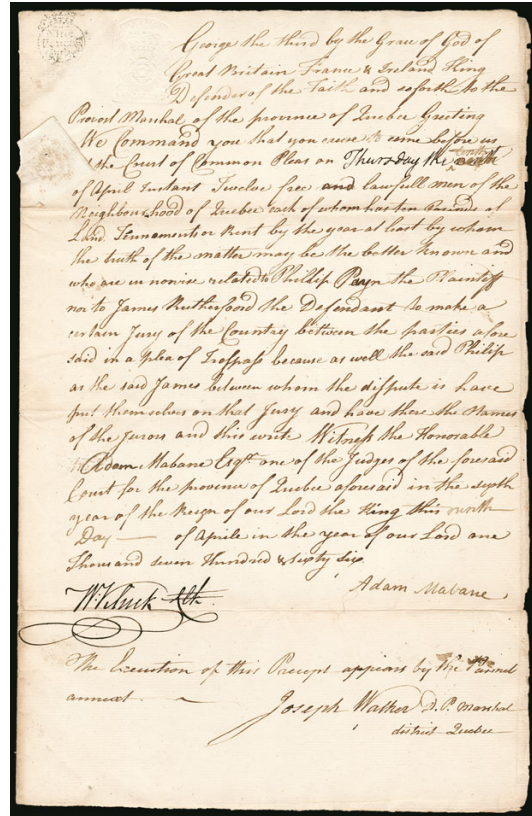 George the third by the Grace of God of
Great Britain France & Ireland King
Defender of the Faith and soforth to the
Provost Marshal of the province of Quebec Greeting
We Command you that you cause to come before us
at the Court of Common Pleas on Thursday the tenth
of April Instant Twelve free and lawfull men of the
Neighbourhood of Quebec each of whom has ten Pounds of
Land Tennaments or Rent by the year at least by whom
the truth of the matter may be the better known and
who are in nowise related to Phillip Payn the Plaintiff
nor to James Rutherfoord the Defendant to make a
certain Jury of the Country between the parties afore
said in a plea of Trespass because as well the said Philip
as the said James between whom the dispute is have
put themselves on that Jury and have there the Names
of the Jurors and this writ Witness the Honorable
Adam Mabane Esqr. one of the Judges of the foresaid
Court for the province of Quebec aforesaid in the sixth
year of the Reign of our Lord the King this
Day — of Aprile in the year of our Lord one
Thousand seven Hundred & sixty six
Adam Mabane
The Execution of this Precept appears by the Pannel
annext —
Joseph Walker D. P. Marshal
district Quebec